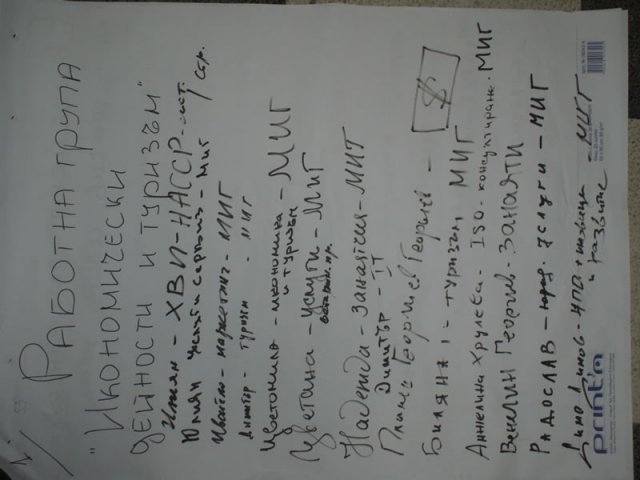 1/ РАБОТНА ГРУПА
"ИКОНОМИЧЕСКИ
ДЕЙНОСТИ И ТУРИЗЪМ"
ХВП - НАССР
Юлиян услуги сервиз - МИГ / Сер.
Ивайло - маркетинг - МИГ
Димитър - туризъм - МИГ
Цветомила - икономика и туризъм - МИГ
Цветана - услуги - МИГ
Надежда - Занаятчия - МИГ
Димитър - IT
Пламен Георгиев Георгиев - $
БИЛЯНА - туризъм МИГ
Анжелина Хрулева - ISO - консултиране. МИГ
Венелин Георгиев. ЗАНАЯТИ
РАДОСЛАВ - юрид. услуги - МИГ
Димо Димов - НПО и развитие - МИГ
printIn